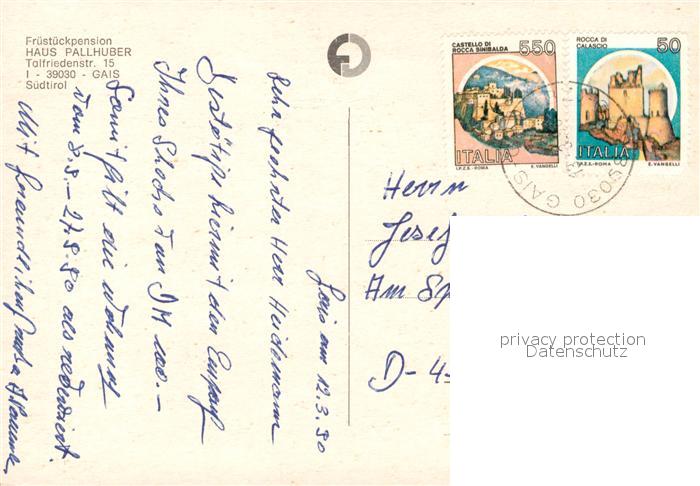 Früstückpension
HAUS PALLHUBER
Talfriedenstr. 15
I - 39030 - GAIS
Südtirol
Gais am 12.3.90
Sehr geehrter Herr Heidemann
Bestätige hiermit den Empfang
Ihres Schecks von DM 100.-
Somit gilt die Wohnung
vom 8.8.-27.8.90 als reserviert.
Mit freundlichen
CASTELLO DI
ROCCA SINIBALDA
550
ITALIA
I.P.Z.S.-ROMA E. VANGELLI
ROCCA DI
CALASCIO
50
ITALIA
I.P.Z.S.-ROMA E. VANGELLI
39030 GAIS
Herrn
Josef
Am
D-4
privacy protection
Datenschutz